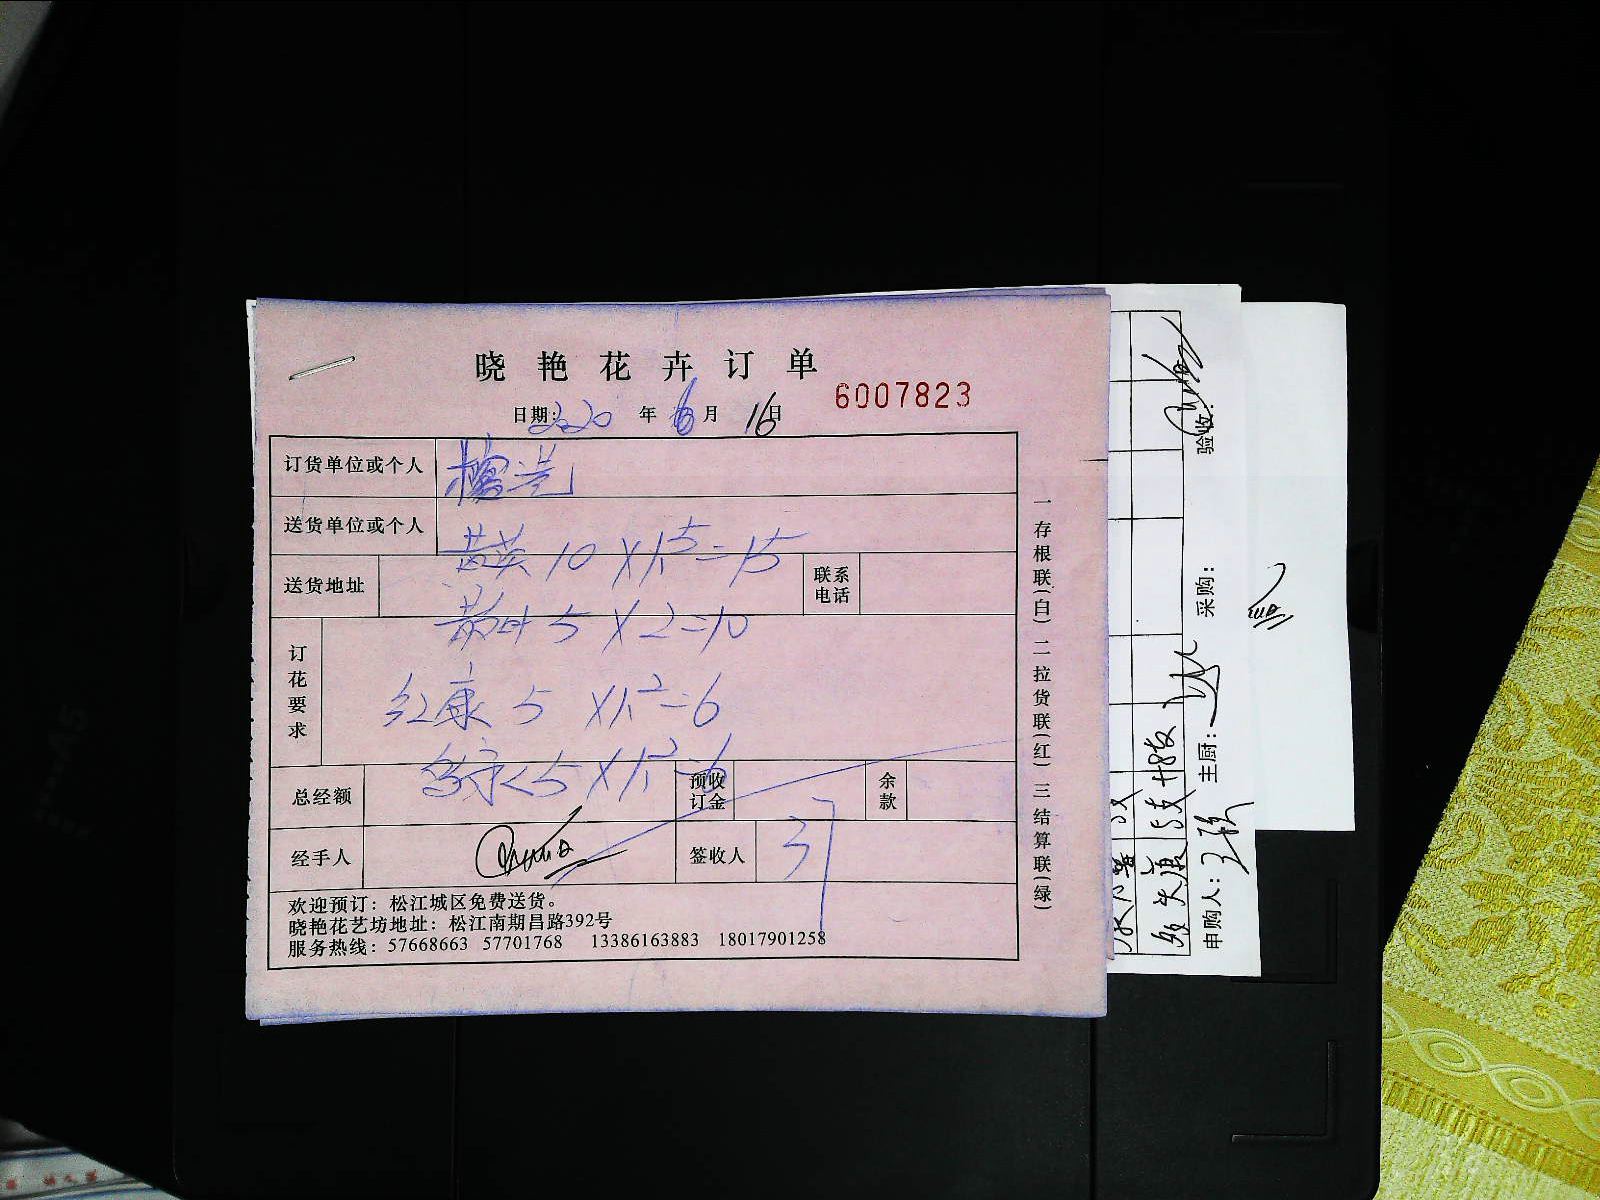 晓艳花卉订单
日期: 2020 年 6 月 16 日
6007823
订货单位或个人
送货单位或个人
黄英 10 X 1.5 = 15
送货地址
联系电话
5 X 2 = 10
订花要求
红康 5 X 1.2 = 6
5 X 1.2 = 6
总经额
预收订金
余款
经手人
签收人
37
欢迎预订：松江城区免费送货。
晓艳花艺坊地址：松江南期昌路392号
服务热线：57668663 57701768 13386163883 18017901258
一存根联(白) 二拉货联(红) 三结算联(绿)
验收:
采购:
主厨:
申购人: